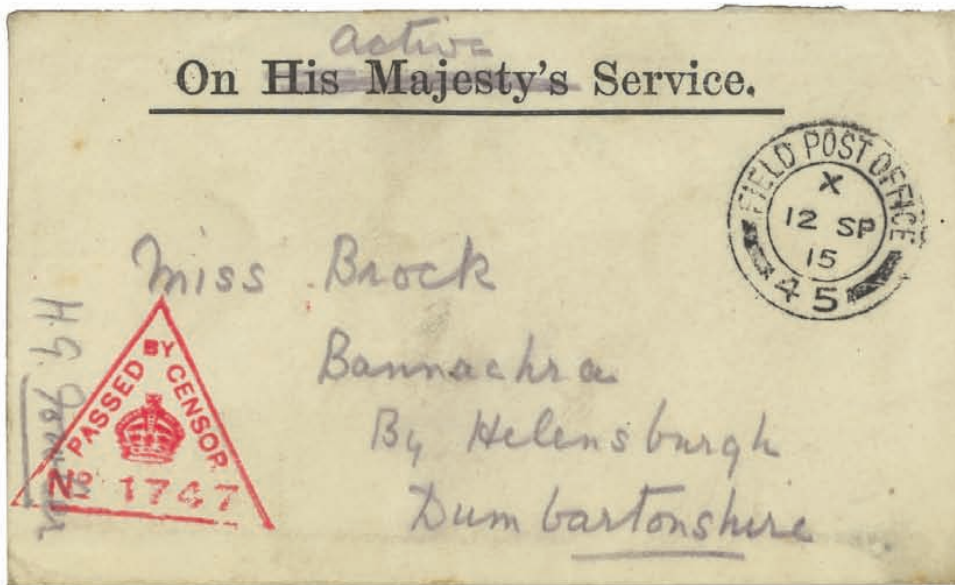 active
On His Majesty's Service.
FIELD POST OFFICE
X
12 SP
15
45
Miss Brock
Bannachra
By Helensburgh
Dumbartonshire
PASSED BY CENSOR
No 1747